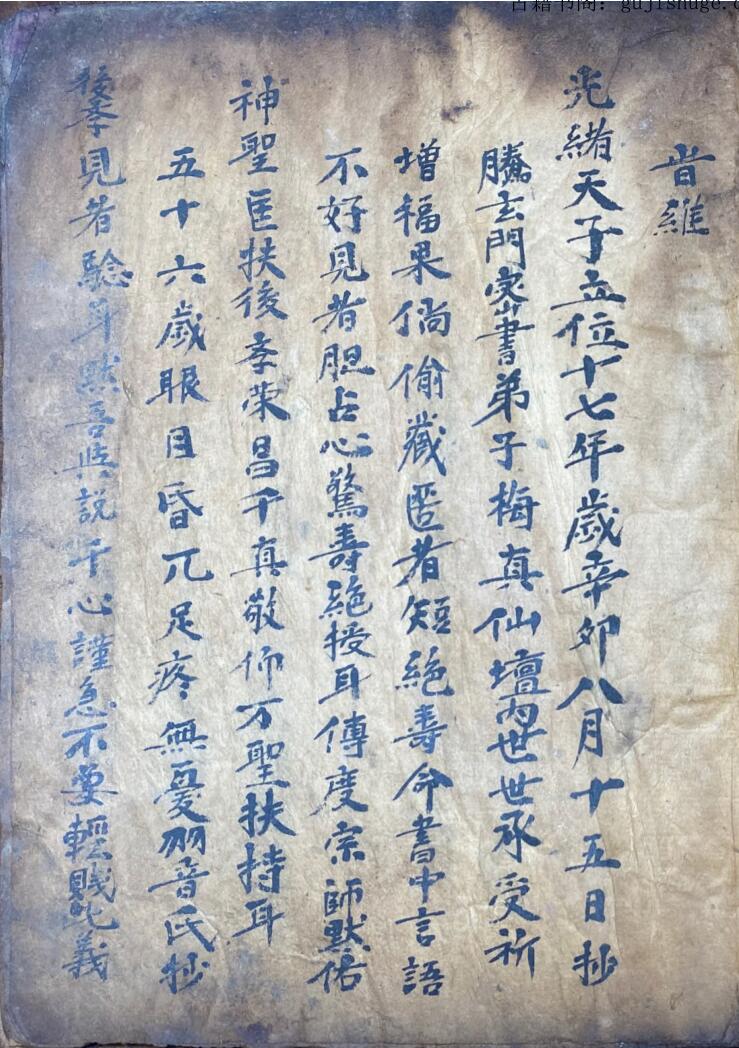 古籍书阁：gujishuge.c
昔維
光緒天子立位十七年歲辛卯八月十五日抄
騰玄門密書弟子梅真仙壇內世世承受祈
增福果倘偷藏匿者短絕壽命書中言語
不好見者胆占心驚壽絕授耳傳度宗師默佑
神聖匡扶後孝荣昌千真敬仰万聖扶持耳
五十六歲眼目昏兀足疼無憂羽音氏抄
後孝見者驗耳默吾與說于心謹急不要輕賤此義